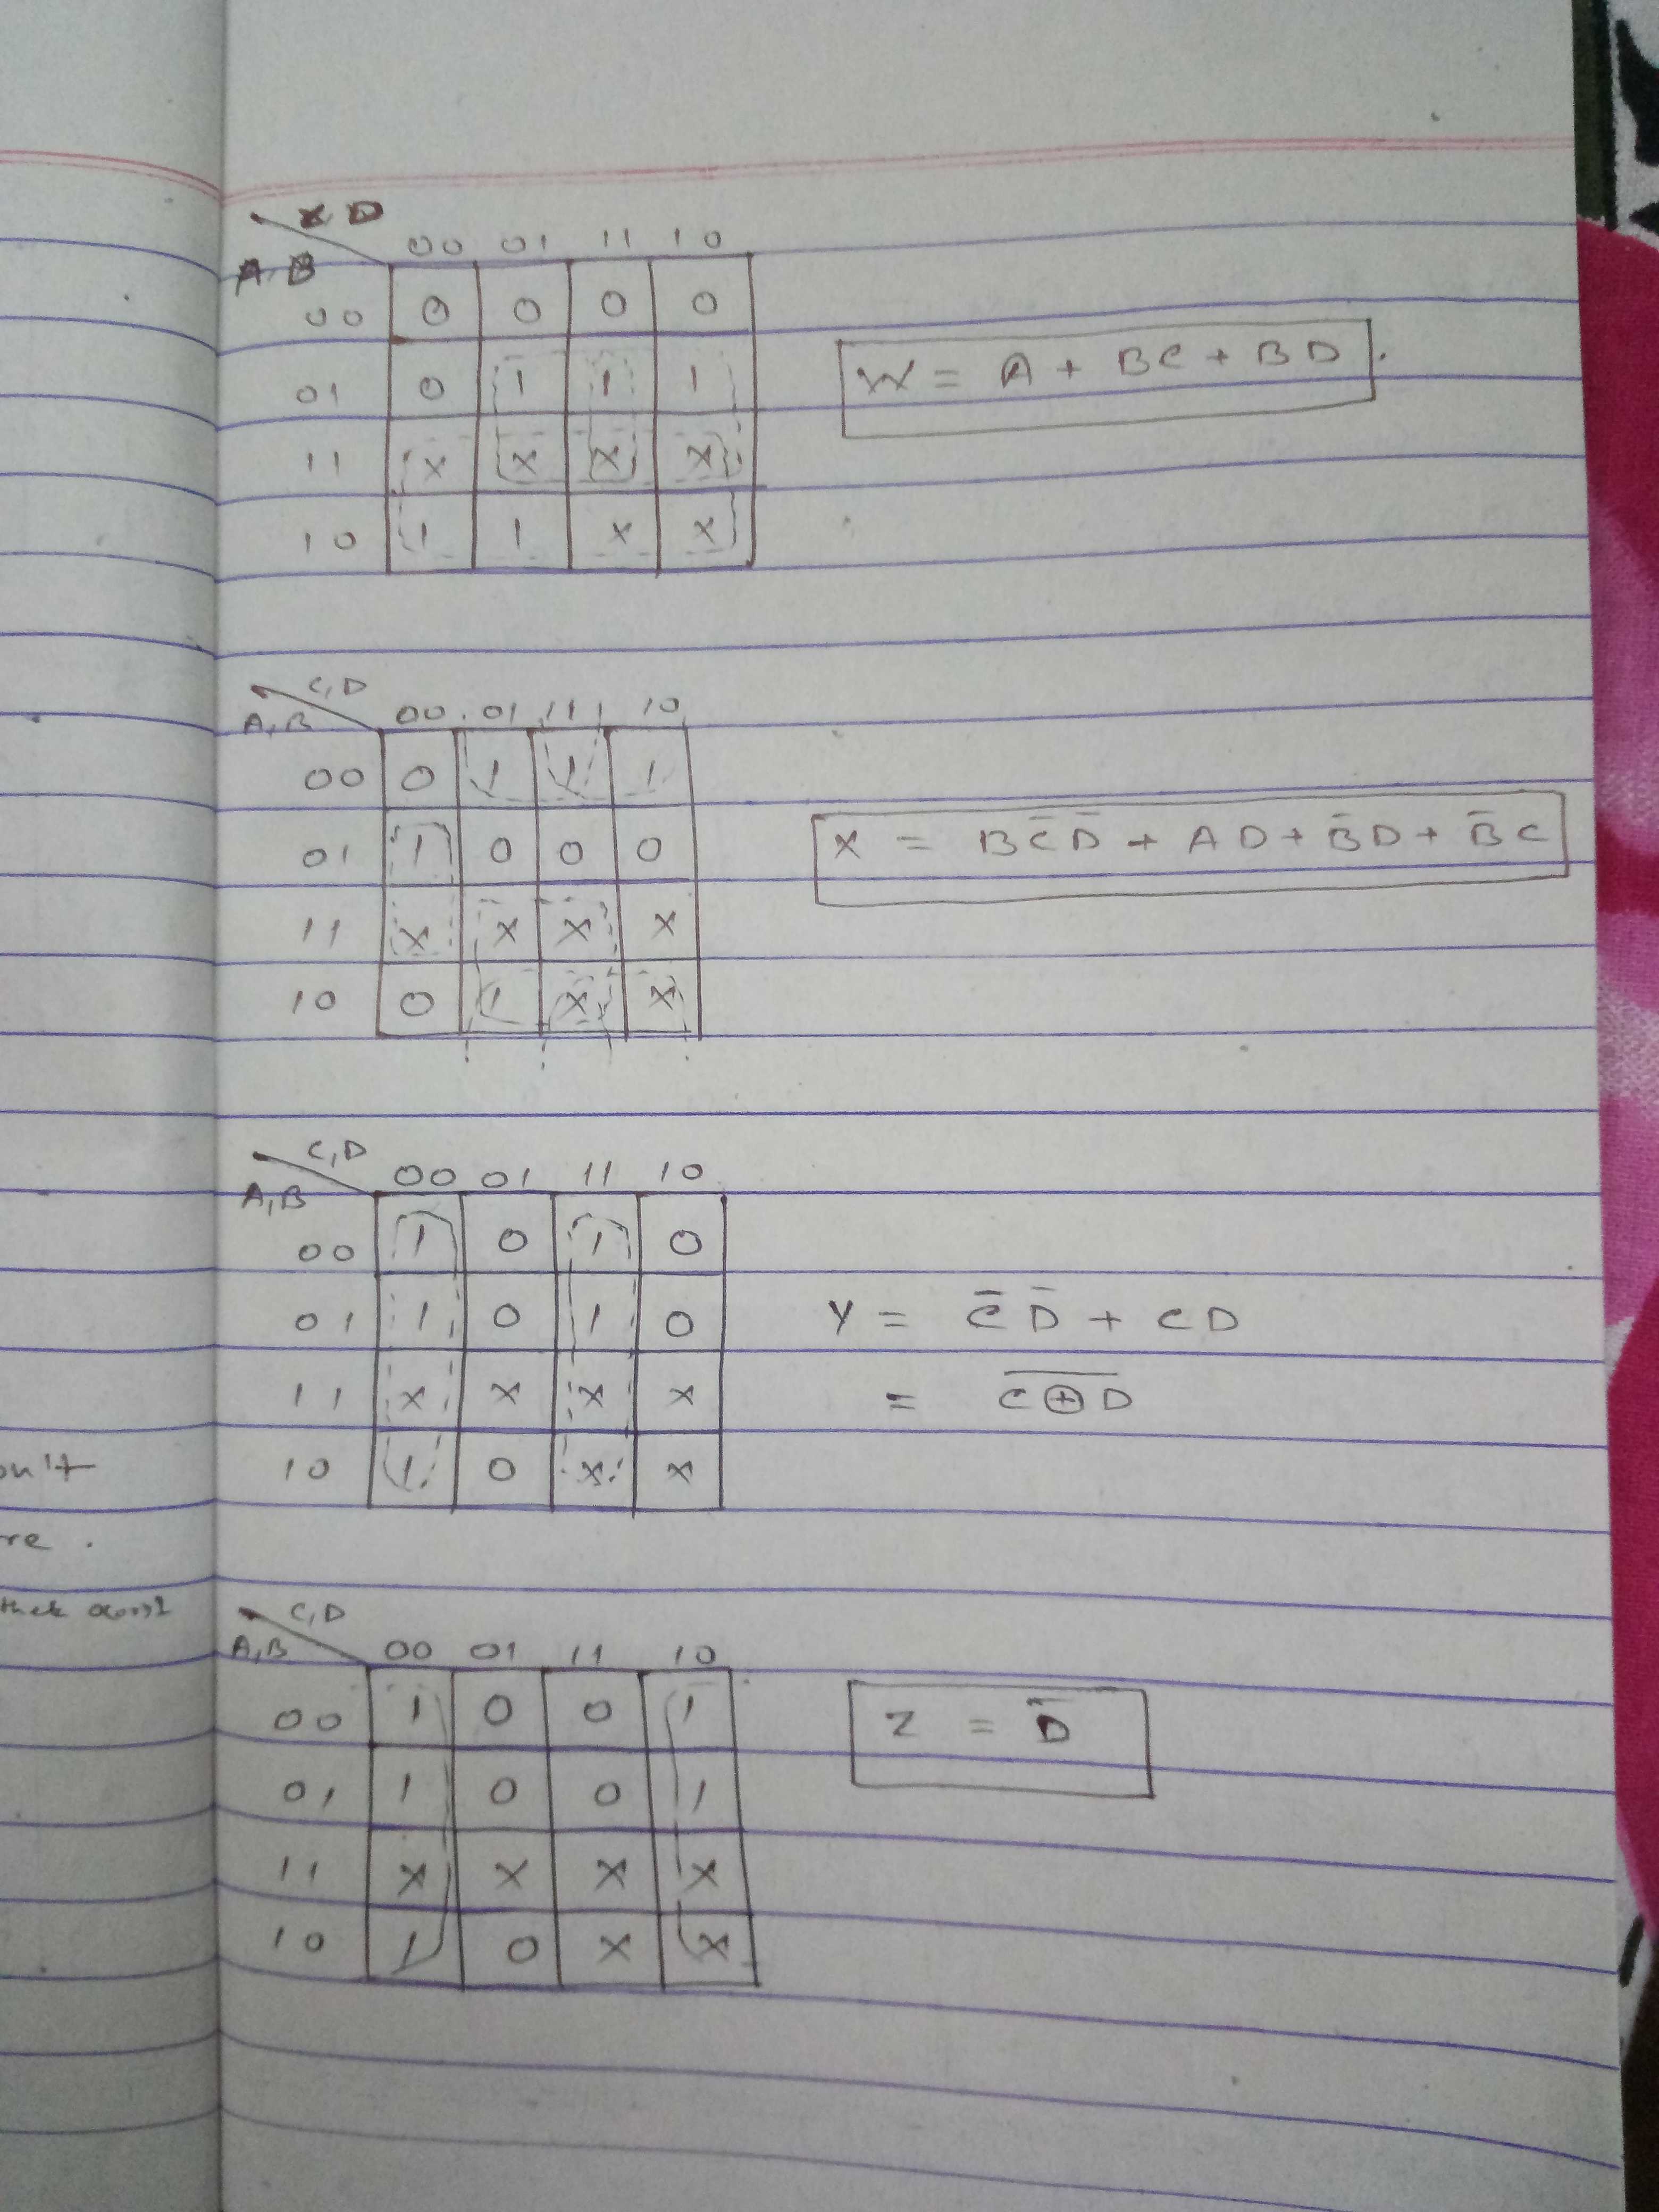 C, D
A, B 00 01 11 10
00 0 0 0 0
01 0 1 1 1
11 x x x x
10 1 1 x x
W = A + BC + BD.
C, D
A, B 00 01 11 10
00 0 1 1 1
01 1 0 0 0
11 x x x x
10 0 1 x x
X = BC̄D̄ + AD + B̄D + B̄C
C, D
A, B 00 01 11 10
00 1 0 1 0
01 1 0 1 0
11 x x x x
10 1 0 x x
Y = C̄ D̄ + CD
= \overline{C ⊕ D}
on't
re.
C, D
A, B 00 01 11 10
00 1 0 0 1
01 1 0 0 1
11 x x x x
10 1 0 x x
Z = D̄